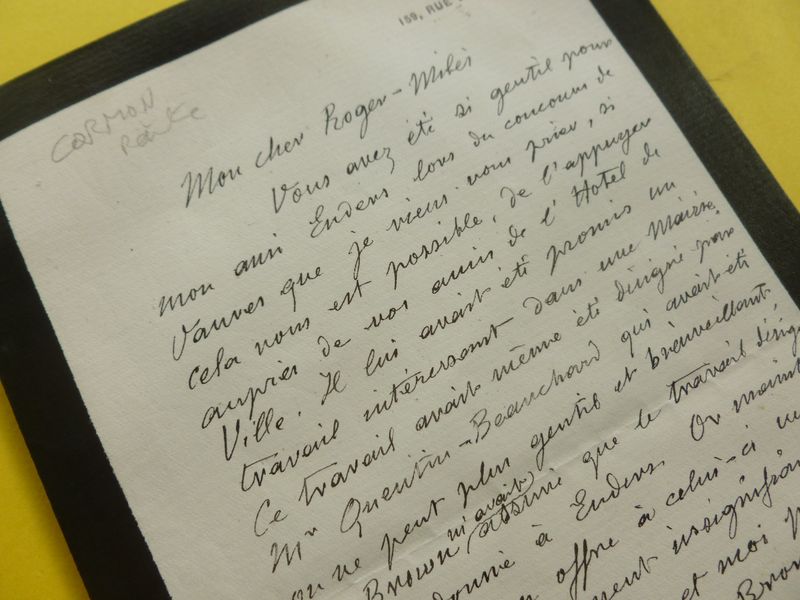 159, RUE
CORMON
Mon cher Roger-Milès
Vous avez été si gentil pour
mon ami Enders lors du concours de
Vanves que je viens vous prier, si
cela vous est possible, de l'appuyer
auprès de vos amis de l'Hotel de
Ville. Il lui avait été promis un
travail intéressant dans une Mairie
Ce travail avait même été désigné par
Mr Quentin-Beauchard qui avait été
on ne peut plus gentil et bienveillant,
m'avait
Brown assuré que le travail désigné
donné à Enders. Or maint
offre à celui-ci un
ment insignifian
et moi
Bro